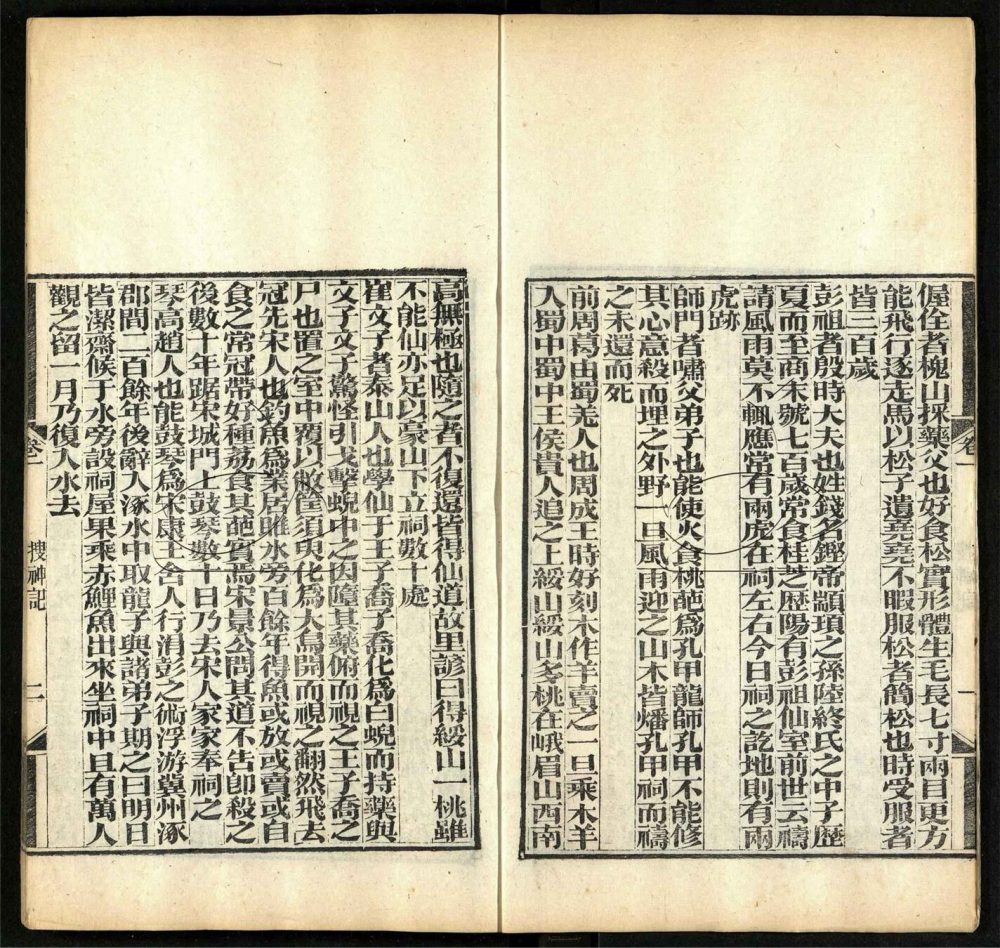 偓佺者槐山採藥父也好食松實形體生毛長七寸兩目更方
能飛行逐走馬以松子遺堯堯不暇服松者簡松也時受服者
皆三百歲
彭祖者殷時大夫也姓錢名鏗帝顓頊之孫陸終氏之中子歷
夏而至商末號七百歲常食桂芝歷陽有彭祖仙室前世云禱
請風雨莫不輒應常有兩虎在祠左右今日祠之訖地則有兩
虎跡
師門者嘯父弟子也能使火食桃葩爲孔甲龍師孔甲不能修
其心意殺而埋之外野一旦風雨迎之山木皆燔孔甲祠而禱
之未還而死
前周葛由蜀羌人也周成王時好刻木作羊賣之一旦乘木羊
入蜀中蜀中王侯貴人追之上綏山綏山多桃在峨眉山西南
高無極也隨之者不復還皆得仙道故里諺曰得綏山一桃雖
不能仙亦足以豪山下立祠數十處
崔文子者泰山人也學仙于王子喬子喬化爲白蜺而持藥與
文子文子驚怪引戈擊蜺中之因墮其藥俯而視之王子喬之
尸也置之室中覆以敝筐須臾化爲大鳥開而視之翻然飛去
冠先宋人也釣魚爲業居睢水旁百餘年得魚或放或賣或自
食之常冠帶好種荔食其葩實焉宋景公問其道不告卽殺之
後數十年踞宋城門上鼓琴數十日乃去宋人家家奉祠之
琴高趙人也能鼓琴爲宋康王舍人行涓彭之術浮游冀州涿
郡間二百餘年後辭入涿水中取龍子與諸弟子期之曰明日
皆潔齋候于水旁設祠屋果乘赤鯉魚出來坐祠中且有萬人
觀之留一月乃復入水去
卷一
搜神記
二